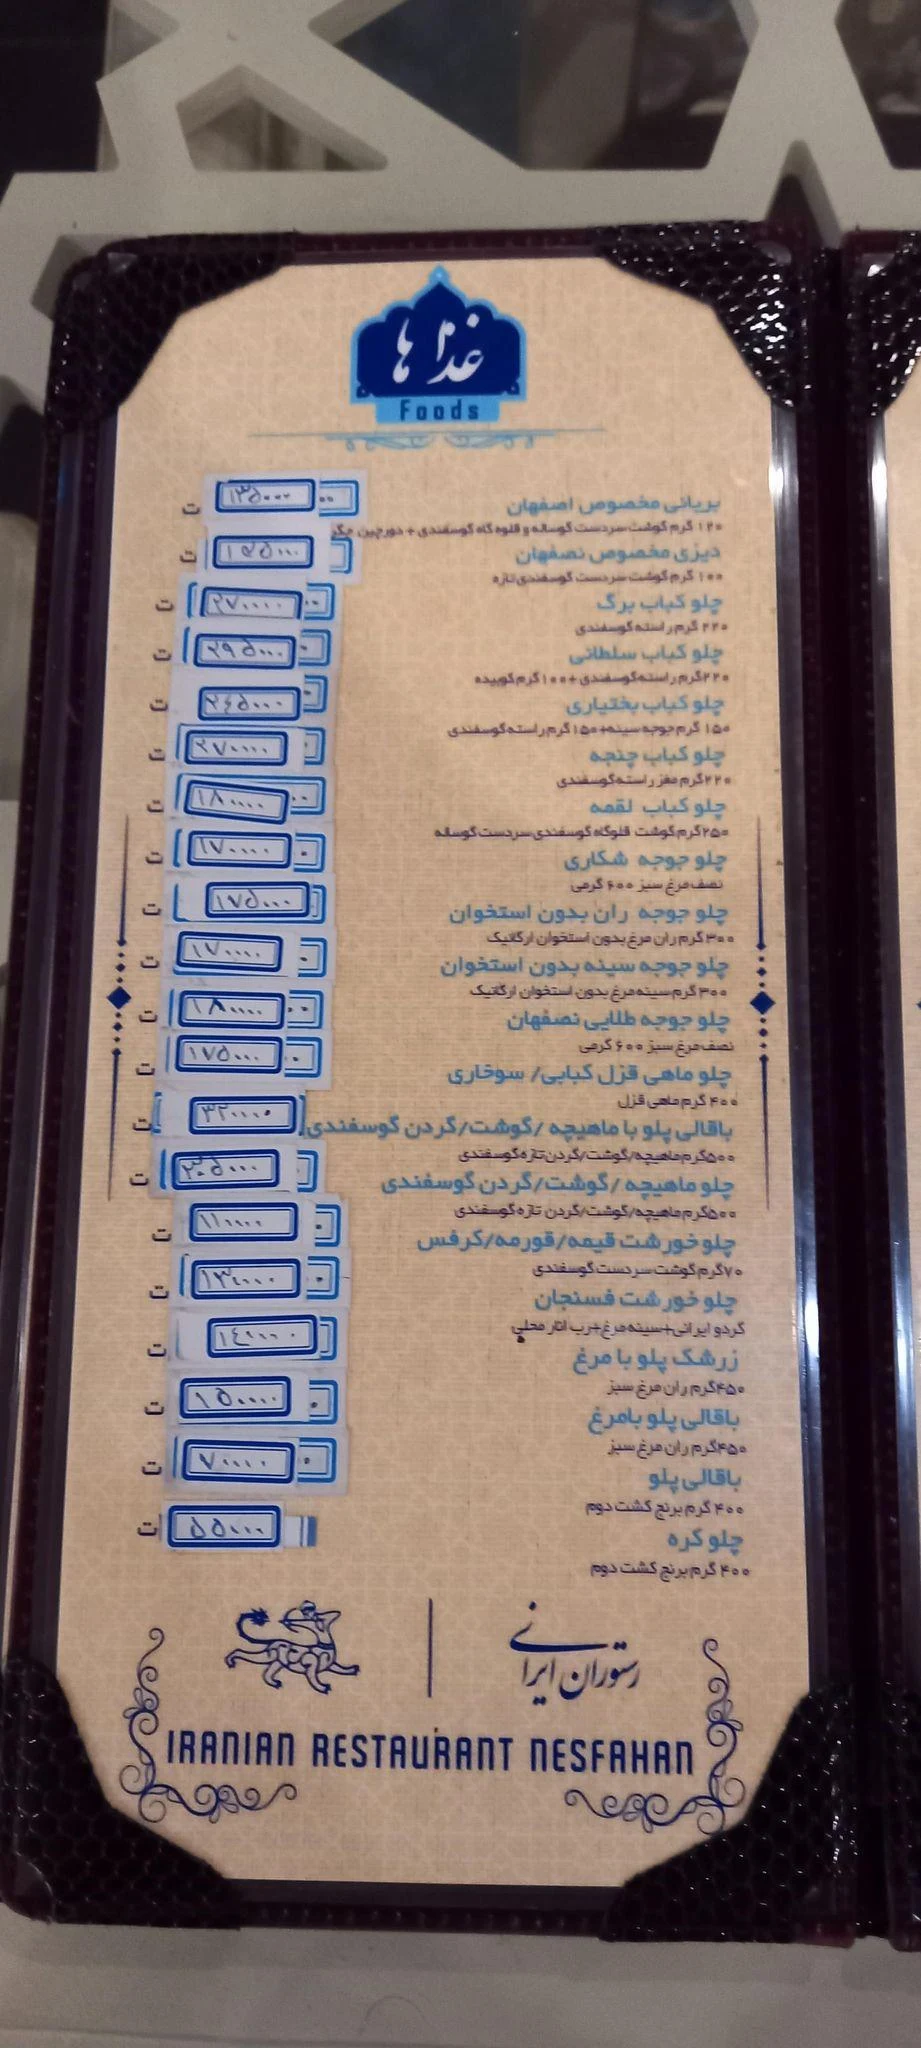 غذا ها
Foods
بریانی مخصوص اصفهان ۱۳۵۰۰۰ ت
۱۲۰ گرم گوشت سردست گوساله و قلوه گاه گوسفندی + دورچین جگر
دیزی مخصوص نصفهان ت
۱۰۰ گرم گوشت سردست گوسفندی تازه
چلو کباب برگ ۲۷۰۰۰۰ ت
۲۲۰ گرم راسته گوسفندی
چلو کباب سلطانی ۲۹۵۰۰۰ ت
۲۲۰گرم راسته گوسفندی +۱۰۰گرم کوبیده
چلو کباب بختیاری ۲۴۵۰۰۰ ت
۱۵۰ گرم جوجه سینه+۱۵۰گرم راسته گوسفندی
چلو کباب چنجه ۲۷۰۰۰۰ ت
۲۲۰گرم مغز راسته گوسفندی
چلو کباب لقمه ۱۸۰۰۰۰ ت
۲۵۰گرم گوشت قلوگاه گوسفندی سردست گوساله
چلو جوجه شکاری ۱۷۰۰۰۰ ت
نصف مرغ سبز ۶۰۰ گرمی
چلو جوجه ران بدون استخوان ۱۷۵۰۰۰ ت
۳۰۰ گرم ران مرغ بدون استخوان ارگانیک
چلو جوجه سینه بدون استخوان ۱۷۰۰۰۰ ت
۳۰۰ گرم سینه مرغ بدون استخوان ارگانیک
چلو جوجه طلایی نصفهان ۱۸۰۰۰۰ ت
نصف مرغ سبز ۶۰۰ گرمی
چلو ماهی قزل کبابی/ سوخاری ۱۷۵۰۰۰ ت
۴۰۰ گرم ماهی قزل
باقالی پلو با ماهیچه /گوشت/گردن گوسفندی ۳۲۰۰۰۰ ت
۵۰۰گرم ماهیچه/گوشت/گردن تازه گوسفندی
چلو ماهیچه /گوشت/گردن گوسفندی ۳۰۵۰۰۰ ت
۵۰۰گرم ماهیچه/گوشت/گردن تازه گوسفندی
چلو خورشت قیمه/قورمه/کرفس ۱۱۰۰۰۰ ت
۷۰گرم گوشت سردست گوسفندی
چلو خورشت فسنجان ۱۳۰۰۰۰ ت
گردو ایرانی+سینه مرغ+رب انار محلی
زرشک پلو با مرغ ۱۴۰۰۰۰ ت
۴۵۰گرم ران مرغ سبز
باقالی پلو بامرغ ۱۵۰۰۰۰ ت
۴۵۰گرم ران مرغ سبز
باقالی پلو ۷۰۰۰۰ ت
۴۰۰ گرم برنج کشت دوم
چلو کره ۵۵۰۰۰ ت
۴۰۰ گرم برنج کشت دوم
رستوران ایرانی
IRANIAN RESTAURANT NESFAHAN